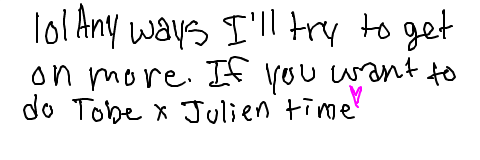 lol Any ways I'll try to get
on more. If you want to
do Tobe x Julien time